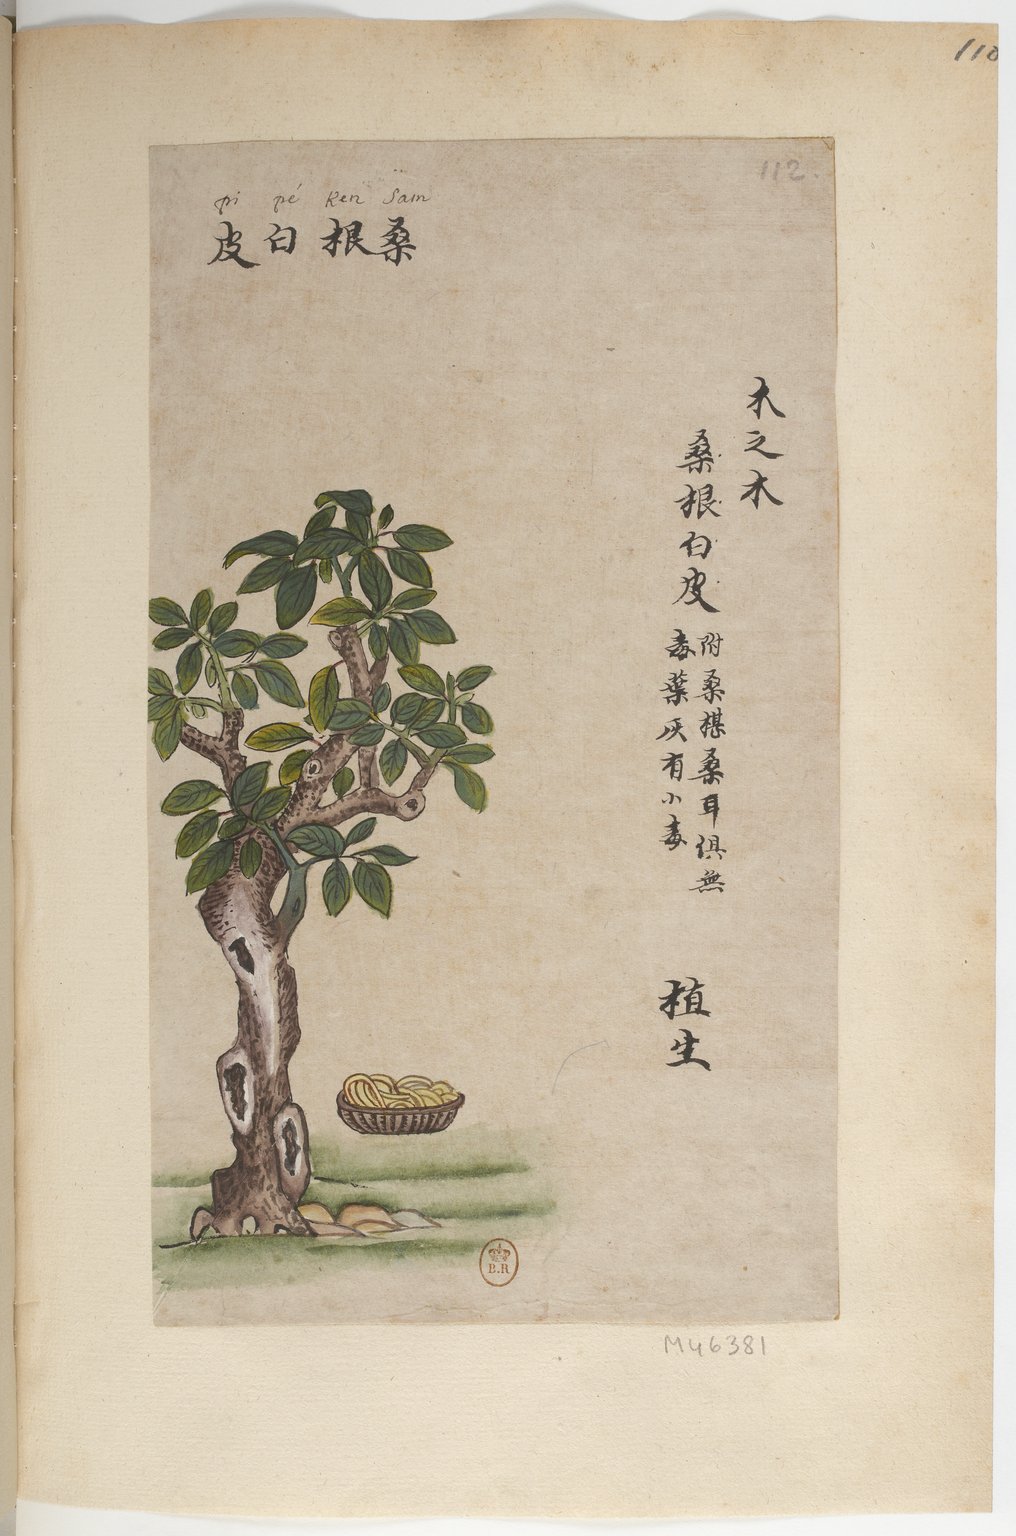 110
112.
pi pé Ken Sam
桑根白皮
木之木
桑根白皮
附桑椹桑耳俱無
毒葉灰有小毒
植生
B.R
M46381